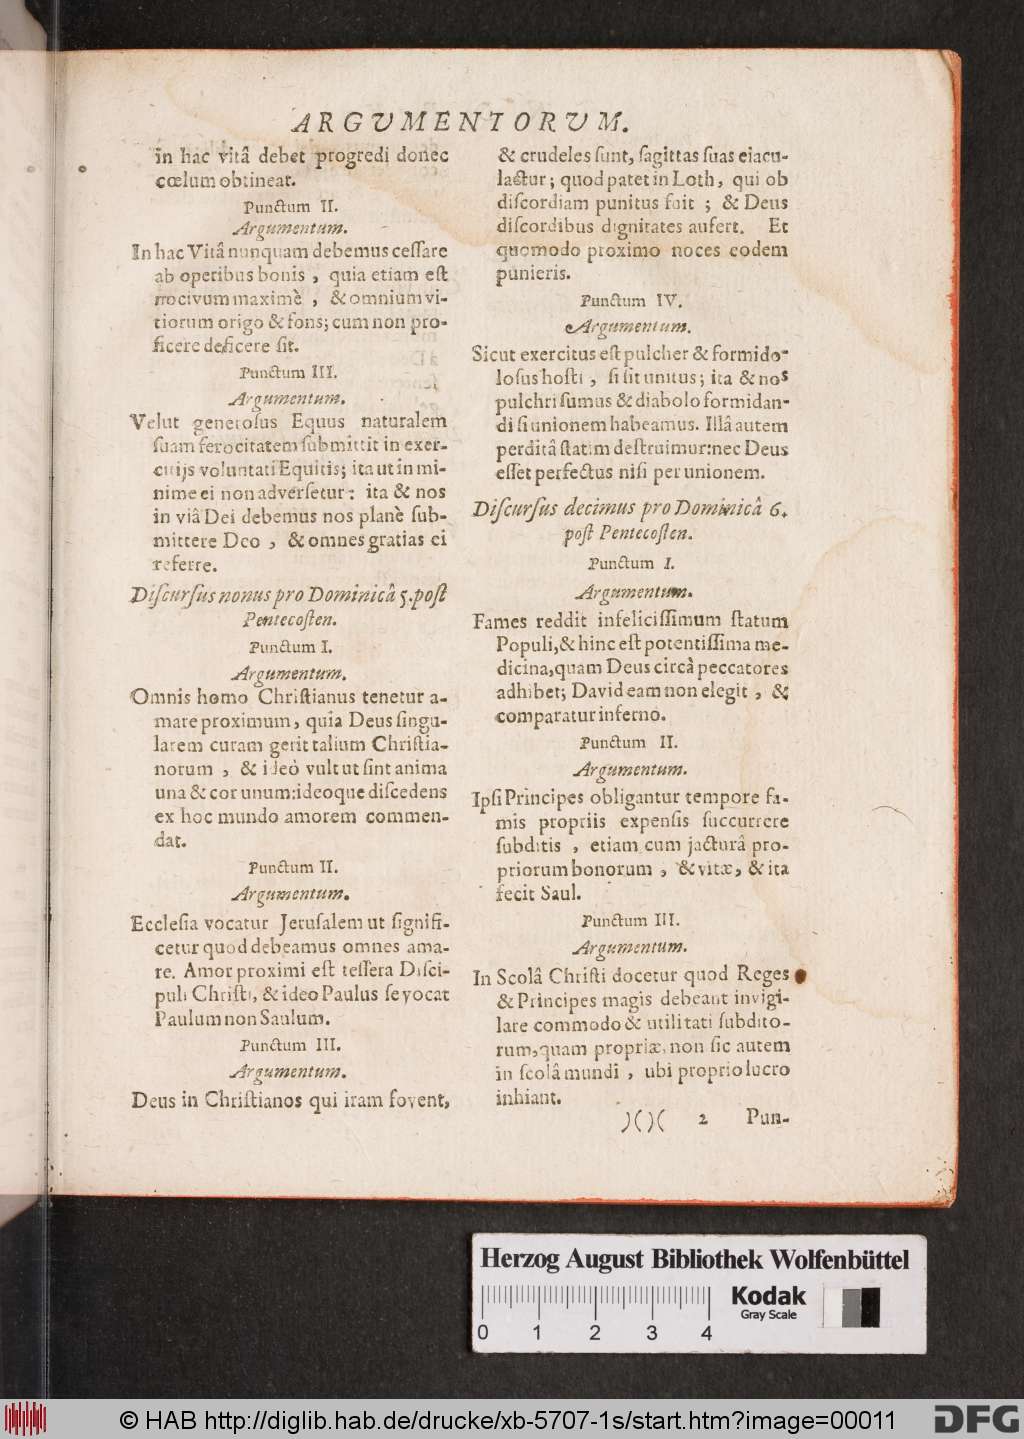 ARGVMENTORVM.
in hac vitâ debet progredi donec
cœlum obtineat.
Punctum II.
Argumentum.
In hac Vitâ nunquam debemus ceſſare
ab operibus bonis , quia etiam eſt
nocivum maximè , & omnium vi-
tiorum origo & fons; cum non pro-
ficere deficere ſit.
Punctum III.
Argumentum.
Velut generoſus Equus naturalem
ſuam ferocitatem ſubmittit in exer-
citijs voluntati Equitis; ita ut in mi-
nime ei non adverſetur: ita & nos
in viâ Dei debemus nos planè ſub-
mittere Deo , & omnes gratias ei
referre.
Diſcurſus nonus pro Dominicâ 5. poſt
Pentecoſten.
Punctum I.
Argumentum.
Omnis homo Chriſtianus tenetur a-
mare proximum, quia Deus ſingu-
larem curam gerit talium Chriſtia-
norum , & ideò vult ut ſint anima
una & cor unum: ideoque diſcedens
ex hoc mundo amorem commen-
dat.
Punctum II.
Argumentum.
Eccleſia vocatur Jeruſalem ut ſignifi-
cetur quod debeamus omnes ama-
re. Amor proximi eſt teſſera Diſci-
puli Chriſti, & ideo Paulus ſe vocat
Paulum non Saulum.
Punctum III.
Argumentum.
Deus in Chriſtianos qui iram fovent,
& crudeles ſunt, ſagittas ſuas ejacu-
lactur; quod patet in Loth, qui ob
diſcordiam punitus fuit ; & Deus
diſcordibus dignitates aufert. Et
quomodo proximo noces eodem
punieris.
Punctum IV.
Argumentum.
Sicut exercitus eſt pulcher & formido-
loſus hoſti , ſi ſit unitus; ita & nos
pulchri ſumus & diabolo formidan-
di ſi unionem habeamus. Illâ autem
perditâ ſtatim deſtruimur: nec Deus
eſſet perfectus niſi per unionem.
Diſcurſus decimus pro Dominicâ 6.
poſt Pentecoſten.
Punctum I.
Argumentum.
Fames reddit infeliciſſimum ſtatum
Populi, & hinc eſt potentiſſima me-
dicina, quam Deus circà peccatores
adhibet; David eam non elegit , &
comparatur inferno.
Punctum II.
Argumentum.
Ipſi Principes obligantur tempore fa-
mis propriis expenſis ſuccurrere
ſubditis , etiam cum jacturâ pro-
priorum bonorum , & vitæ, & ita
fecit Saul.
Punctum III.
Argumentum.
In Scolâ Chriſti docetur quod Reges
& Principes magis debeant invigi-
lare commodo & utilitati ſubdito-
rum, quam propriæ, non ſic autem
in ſcolâ mundi , ubi proprio lucro
inhiant.
)()( 2 Pun-
Herzog August Bibliothek Wolfenbüttel
Kodak
Gray Scale
0 1 2 3 4
© HAB http://diglib.hab.de/drucke/xb-5707-1s/start.htm?image=00011
DFG